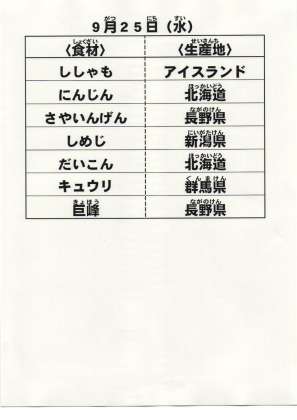 9月25日（水）
〈食材〉 〈生産地〉
ししゃも アイスランド
にんじん 北海道
さやいんげん 長野県
しめじ 新潟県
だいこん 北海道
キュウリ 群馬県
巨峰 長野県